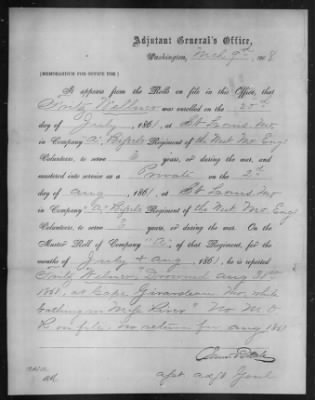 Adjutant General's Office,
Washington, Mch 9th 1868
[MEMORANDUM FOR OFFICE USE.]
It appears from the Rolls on file in this Office, that
Fritz Wellner was enrolled on the 20th
day of July, 1861, at St Louis Mo
in Company "A", Bissel's Regiment of the West Mo Eng
Volunteers, to serve 3 years, or during the war, and
mustered into service as a Private on the 2d
day of Aug, 1861, at St Louis Mo
in Company "A" Bissels Regiment of the West Mo. Eng
Volunteers, to serve 3 years, or during the war. On the
Muster Roll of Company "A", of that Regiment, for the
months of July & Aug, 1861, he is reported
Fritz Wellner, Drowned Aug 31st
1861, at Cape Girardeau Mo, while
bathing in Miss River" No M. O
R on file. No return for Aug 1861
Asst Adjt Genl